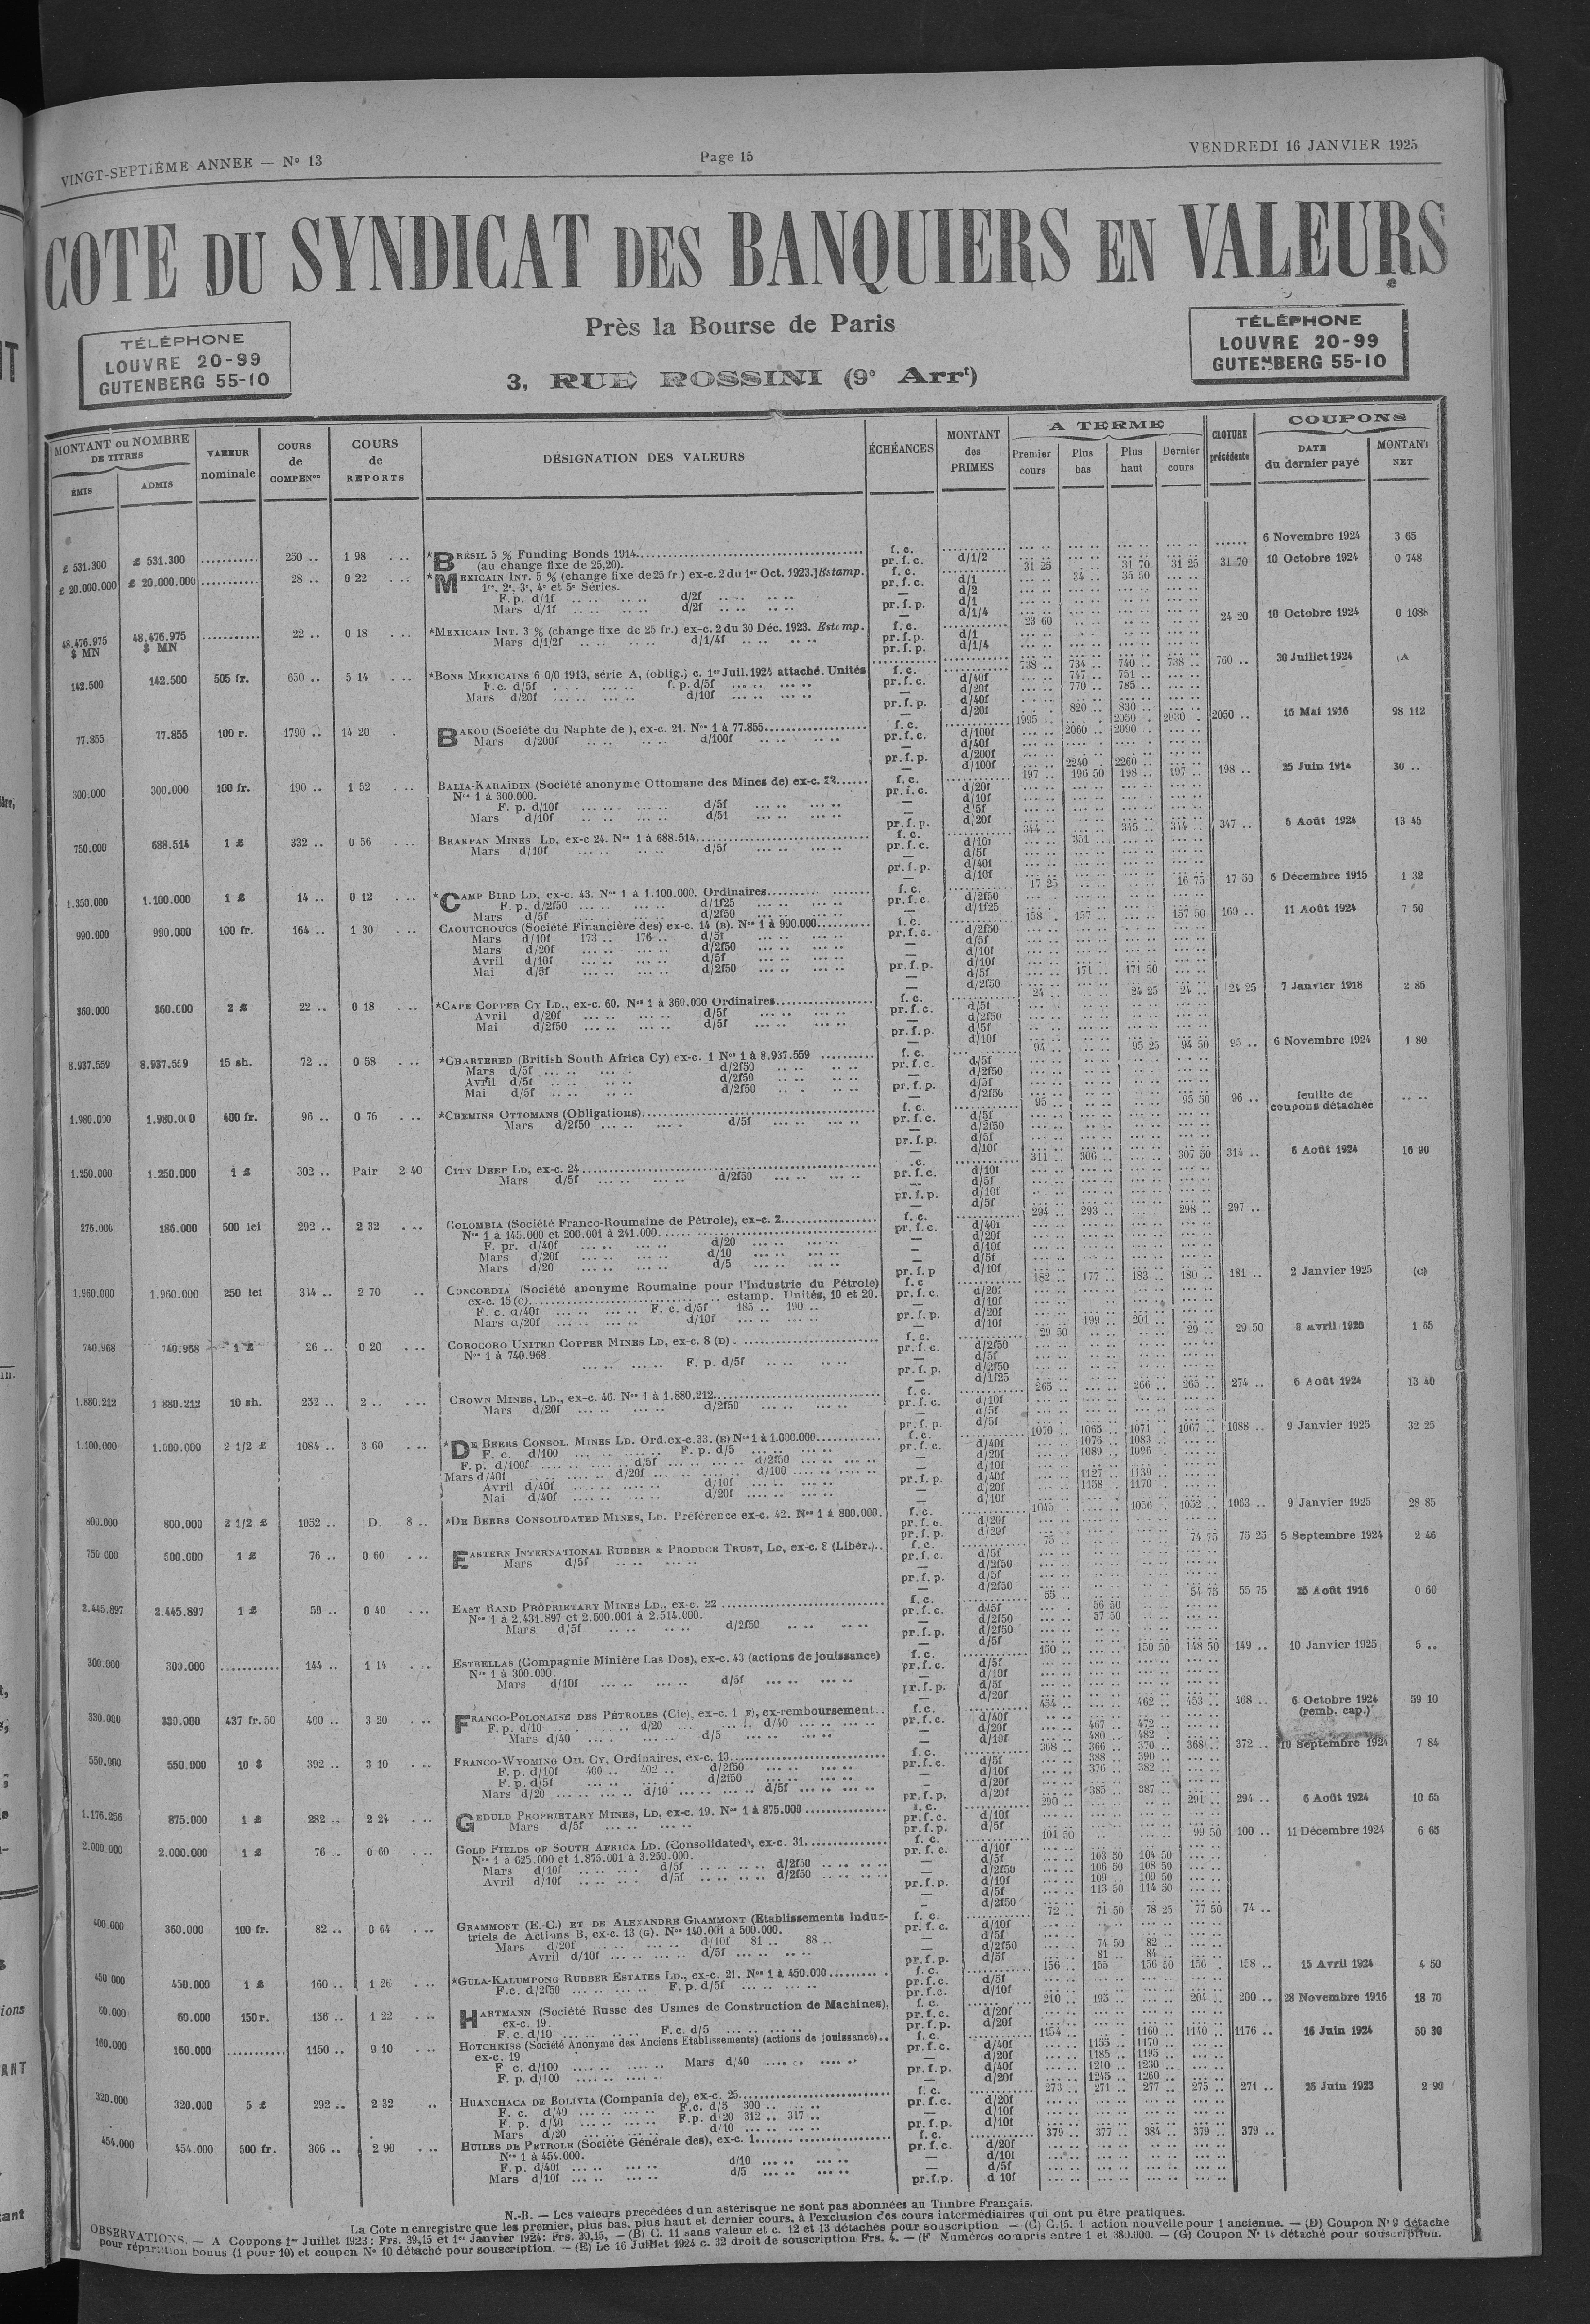 VINGT-SEPTIÈME ANNÉE — N° 13
Page 15
VENDREDI 16 JANVIER 1925
COTE DU SYNDICAT DES BANQUIERS EN VALEURS
Près la Bourse de Paris
3, RUE ROSSINI (9e Arrt)
TÉLÉPHONE
LOUVRE 20-99
GUTENBERG 55-10
TÉLÉPHONE
LOUVRE 20-99
GUTENBERG 55-10
MONTANT ou NOMBRE DE TITRES
ÉMIS
ADMIS
VALEUR nominale
COURS de COMPENon
COURS de REPORTS
DÉSIGNATION DES VALEURS
ÉCHÉANCES
MONTANT des PRIMES
A TERME
Premier cours
Plus bas
Plus haut
Dernier cours
CLOTURE précédente
COUPONS
DATE du dernier payé
MONTANT NET
£ 531.300 £ 531.300 250 .. 1 98 *BRÉSIL 5 % Funding Bonds 1914 f. c. 6 Novembre 1924 3 65
(au change fixe de 25,20). pr. f. c. d/1/2
£ 20.000.000 £ 20.000.000 28 .. 0 22 *MEXICAIN INT. 5 % (change fixe de 25 fr.) ex-c. 2 du 1er Oct. 1923.] Estamp. f. c. 31 25 31 70 31 25 31 70 10 Octobre 1924 0 748
1re, 2e, 3e, 4e et 5e Séries. pr. f. c. d/1 34 .. 35 50
F. p. d/1f d/2f — d/2
Mars d/1f d/2f pr. f. p. d/1
— d/1/4
48.476.975 $ MN 48.476.975 $ MN 22 .. 0 18 *MEXICAIN INT. 3 % (change fixe de 25 fr.) ex-c. 2 du 30 Déc. 1923. Estamp. f. c. 23 60 24 20 10 Octobre 1924 0 1088
Mars d/1/2f d/1/4f pr. f. p. d/1
pr. f. p. d/1/4
142.500 142.500 505 fr. 650 .. 5 14 *BONS MEXICAINS 6 0/0 1913, série A, (oblig.) c. 1er Juil. 1924 attaché. Unités f. c. 738 .. 734 .. 740 .. 738 .. 760 .. 30 Juillet 1924 (A
F. c. d/5f f. p. d/5f pr. f. c. d/40f 747 .. 751 ..
Mars d/20f d/10f — d/20f 770 .. 785 ..
pr. f. p. d/40f
— d/20f 820 .. 830 ..
77.855 77.855 100 r. 1790 .. 14 20 BAKOU (Société du Naphte de ), ex-c. 21. Nos 1 à 77.855 f. c. 1995 2050 2030 2050 .. 16 Mai 1916 98 112
Mars d/200f d/100f pr. f. c. d/100f 2060 .. 2090
— d/40f
pr. f. p. d/200f
— d/100f 2240 2260
300.000 300.000 100 fr. 190 .. 1 52 BALIA-KARAÏDIN (Société anonyme Ottomane des Mines de) ex-c. f. c. 197 .. 196 50 198 .. 197 .. 198 .. 25 Juin 1914 30 ..
Nos 1 à 300.000. pr. f. c. d/20f
F. p. d/10f d/5f — d/10f
Mars d/10f d/51 — d/5f
pr. f. p. d/20f
750.000 688.514 1 £ 332 .. 0 56 BRAKPAN MINES LD, ex-c 24. Nos 1 à 688.514 f. c. 344 345 .. 344 .. 347 .. 6 Août 1924 13 45
Mars d/10f d/5f pr. f. c. d/10f 351
— d/5f
pr. f. p. d/40f
— d/10f
1.350.000 1.100.000 1 £ 14 .. 0 12 *CAMP BIRD LD, ex-c. 43. Nos 1 à 1.100.000. Ordinaires f. c. 17 25 16 75 17 50 6 Décembre 1915 1 32
F. p. d/2f50 d/1f25 pr. f. c. d/2f50
Mars d/5f d/2f50 — d/1f25
990.000 990.000 100 fr. 164 .. 1 30 CAOUTCHOUCS (Société Financière des) ex-c. 14 (B). Nos 1 à 990.000 f. c. 158 .. 157 .. 157 50 160 .. 11 Août 1924 7 50
Mars d/10f 173 .. 176 .. d/5f pr. f. c. d/2f50
Mars d/20f d/2f50 — d/5f
Avril d/10f d/5f — d/10f
Mai d/5f d/2f50 pr. f. p. d/10f
— d/5f 171 .. 171 50
— d/2f50
360.000 360.000 2 £ 22 .. 0 18 *CAPE COPPER CY LD., ex-c. 60. Nos 1 à 360.000 Ordinaires f. c. 24 .. 24 25 24 .. 24 25 7 Janvier 1918 2 85
Avril d/20f d/5f pr. f. c. d/5f
Mai d/2f50 d/5f — d/2f50
pr. f. p. d/5f
— d/10f
8.937.559 8.937.559 15 sh. 72 .. 0 58 *CHARTERED (British South Africa Cy) ex-c. 1 Nos 1 à 8.937.559 f. c. 94 .. 95 25 94 50 95 .. 6 Novembre 1924 1 80
Mars d/5f d/2f50 pr. f. c. d/5f
Avril d/5f d/2f50 — d/2f50
Mai d/5f d/2f50 pr. f. p. d/5f
— d/2f50
1.980.000 1.980.000 400 fr. 96 .. 0 76 *CHEMINS OTTOMANS (Obligations) f. c. 95 .. 95 50 96 .. feuille de coupons détachée
Mars d/2f50 d/5f pr. f. c. d/5f
— d/2f50
pr. f. p. d/5f
— d/10f
1.250.000 1.250.000 1 £ 302 .. Pair 2 40 CITY DEEP LD, ex-c. 24 .c. 311 .. 306 .. 307 50 314 .. 6 Août 1924 16 90
Mars d/5f d/2f50 pr. f. c. d/10f
— d/5f
pr. f. p. d/10f
— d/5f
276.000 186.000 500 lei 292 .. 2 32 COLOMBIA (Société Franco-Roumaine de Pétrole), ex-c. 2 f. c. 294 .. 293 .. 298 .. 297 ..
Nos 1 à 145.000 et 200.001 à 241.000 pr. f. c. d/40f
F. pr. d/40f d/20 — d/20f
Mars d/20f d/10 — d/10f
Mars d/20 d/5 — d/5f
pr. f. p d/10f
1.960.000 1.960.000 250 lei 314 .. 2 70 CONCORDIA (Société anonyme Roumaine pour l'Industrie du Pétrole) f. c 182 .. 177 .. 183 .. 180 .. 181 .. 2 Janvier 1925 (C)
ex-c. 15 (C) estamp. Unités, 10 et 20. pr. f. c. d/20f
F. c. d/40f F. c. d/5f 185 .. 190 .. — d/10f
Mars d/20f d/10f pr. f. p. d/20f
— d/10f 199 .. 201 ..
740.968 740.968 1 £ 26 .. 0 20 COROCORO UNITED COPPER MINES LD, ex-c. 8 (D) f. c. 29 50 29 .. 29 50 8 Avril 1920 1 65
Nos 1 à 740.968 pr. f. c. d/2f50
F. p. d/5f — d/5f
pr. f. p. d/2f50
— d/1f25
1.880.212 1 880.212 10 sh. 252 .. 2 .. CROWN MINES, LD., ex-c. 46. Nos 1 à 1.880.212 f. c. 265 .. 266 .. 265 .. 274 .. 6 Août 1924 13 40
Mars d/20f d/2f50 pr. f. c. d/10f
— d/5f
pr. f. p. d/5f
1.100.000 1.000.000 2 1/2 £ 1084 .. 3 60 *DE BEERS CONSOL. MINES LD. Ord. ex-c. 33. (E) Nos 1 à 1.000.000 f. c. 1070 1065 1071 1067 1088 .. 9 Janvier 1925 32 25
F. c. d/100 F. p. d/5 pr. f. c. d/40f 1076 1083
F. p. d/100f d/5f d/2f50 — d/20f 1089 1096
Mars d/40f d/20f d/100 — d/10f
Avril d/40f d/10f pr. f. p. d/40f 1127 1139
Mai d/40f d/20f — d/20f 1158 1170
— d/10f
800.000 800.000 2 1/2 £ 1052 .. D. 8 .. *DE BEERS CONSOLIDATED MINES, LD. Préférence ex-c. 42. Nos 1 à 800.000. f. c. 1045 1056 1052 1063 .. 9 Janvier 1925 28 85
pr. f. c. d/20f
pr. f. p. d/20f
750 000 500.000 1 £ 76 .. 0 60 EASTERN INTERNATIONAL RUBBER & PRODUCE TRUST, LD, ex-c. 8 (Libér.) f. c. 75 .. 74 75 75 25 5 Septembre 1924 2 46
Mars d/5f pr. f. c. d/5f
— d/2f50
pr. f. p. d/5f
— d/2f50
2.445.897 2.445.897 1 £ 50 .. 0 40 EAST RAND PROPRIETARY MINES LD., ex-c. 22 f. c. 55 .. 54 75 55 75 25 Août 1916 0 60
Nos 1 à 2.431.897 et 2.500.001 à 2.514.000. pr. f. c. d/5f 56 50
Mars d/5f d/2f50 — d/2f50 57 50
pr. f. p. d/2f50
— d/5f
300.000 300.000 144 .. 1 14 ESTRELLAS (Compagnie Minière Las Dos), ex-c. 43 (actions de jouissance) f. c. 150 .. 150 50 148 50 149 .. 10 Janvier 1925 5 ..
Nos 1 à 300.000. pr. f. c. d/5f
Mars d/10f d/5f — d/10f
pr. f. p. d/5f
— d/20f
330.000 330.000 437 fr. 50 400 .. 3 20 FRANCO-POLONAISE DES PÉTROLES (Cie), ex-c. 1 F), ex-remboursement f. c. 454 .. 462 .. 453 .. 468 .. 6 Octobre 1924 (remb. cap.) 59 10
F. p. d/10 d/20 d/40 pr. f. c. d/40f
Mars d/40 d/5 — d/20f 467 472
— d/10f 480 482
550.000 550.000 10 $ 392 .. 3 10 FRANCO-WYOMING OIL CY, Ordinaires, ex-c. 13 f. c. 368 .. 366 .. 370 .. 368 .. 372 .. 10 Septembre 1924 7 84
F. p. d/10f 400 .. 402 .. d/2f50 pr. f. c. d/5f 388 .. 390 ..
F. p. d/5f d/2f50 — d/10f 376 .. 382 ..
Mars d/20 d/10 d/5f — d/20f
pr. f. p. d/20f 385 .. 387 ..
1.176.256 875.000 1 £ 282 .. 2 24 GEDULD PROPRIETARY MINES, LD, ex-c. 19. Nos 1 à 875.000 f. c. 290 .. 291 .. 294 .. 6 Août 1924 10 65
Mars d/5f pr. f. c. d/10f
pr. f. p. d/5f
2.000 000 2.000.000 1 £ 76 .. 0 60 GOLD FIELDS OF SOUTH AFRICA LD. (Consolidated), ex-c. 31 f. c. 101 50 99 50 100 .. 11 Décembre 1924 6 65
Nos 1 à 625.000 et 1.875.001 à 3.250.000. pr. f. c. d/10f
Mars d/10f d/5f d/2f50 — d/5f 103 50 104 50
Avril d/10f d/5f d/2f50 — d/2f50 106 50 108 50
pr. f. p. d/10f 109 .. 109 50
— d/5f 113 50 114 50
— d/2f50
400.000 360.000 100 fr. 82 .. 0 64 GRAMMONT (E.-C.) ET DE ALEXANDRE GRAMMONT (Etablissements Indus- f. c. 72 .. 71 50 78 25 77 50 74 ..
triels de Actions B, ex-c. 13 (G). Nos 140.001 à 500.000. pr. f. c. d/10f
Mars d/20f d/10f 81 .. 88 .. — d/5f
Avril d/10f d/5f — d/2f50 74 50 82 ..
pr. f. p. d/5f 81 .. 84
450 000 450.000 1 £ 160 .. 1 26 *GULA-KALUMPONG RUBBER ESTATES LD., ex-c. 21. Nos 1 à 450.000 f. c. 156 .. 155 156 50 156 158 .. 15 Avril 1924 4 50
F.c. d/2f50 F. p. d/5f pr. f. c. d/5f
pr. f. c. d/10f
60.000 60.000 150 r. 156 .. 1 22 HARTMANN (Société Russe des Usines de Construction de Machines), f. c. 210 .. 195 .. 204 .. 200 .. 28 Novembre 1916 18 70
ex-c. 19. pr. f. c. d/20f
F. c. d/10 F. c. d/5 pr. f. p. d/20f
160.000 160.000 1150 .. 9 10 HOTCHKISS (Société Anonyme des Anciens Etablissements) (actions de jouissance) f. c. 1154 .. 1160 .. 1140 .. 1176 .. 16 Juin 1924 50 30
ex-c. 19 pr. f. c. d/40f 1155 1170
F c. d/100 Mars d/40 — d/20f 1185 1195
F. p. d/100 pr. f. p. d/40f 1210 .. 1230
— d/20f 1245 .. 1260
320.000 320.000 5 £ 292 .. 2 32 HUANCHACA DE BOLIVIA (Compania de), ex-c. 25 f. c. 273 .. 271 .. 277 .. 275 .. 271 .. 26 Juin 1923 2 90
F. c. d/40 F.c. d/5 300 .. pr. f. c. d/20f
F p. d/40 F.p. d/20 312 .. 317 .. — d/10f
Mars d/20 d/10 pr. f. p. d/10f
454.000 454.000 500 fr. 366 .. 2 90 HUILES DE PÉTROLE (Société Générale des), ex-c. 1 f. c. 379 .. 377 .. 384 .. 379 .. 379 ..
Nos 1 à 454.000. pr. f. c. d/20f
F. p. d/40f d/10 — d/10f
Mars d/10f d/5 — d/5f
pr. f. p. d 10f
N.-B. — Les valeurs précédées d'un astérisque ne sont pas abonnées au Timbre Français.
La Cote n'enregistre que les premier, plus bas, plus haut et dernier cours, à l'exclusion des cours intermédiaires qui ont pu être pratiqués.
OBSERVATIONS. — A Coupons 1er Juillet 1923: Frs. 39,15 et 1er Janvier 1924: Frs. 30,15. — (B) C. 11 sans valeur et c. 12 et 13 détachés pour souscription — (C) C.15. 1 action nouvelle pour 1 ancienne. — (D) Coupon No 9 détaché
pour répartition bonus (1 pour 10) et coupon No 10 détaché pour souscription. — (E) Le 16 Juillet 1924 c. 32 droit de souscription Frs. 4. — (F Numéros compris entre 1 et 380.000. — (G) Coupon No 14 détaché pour souscription.